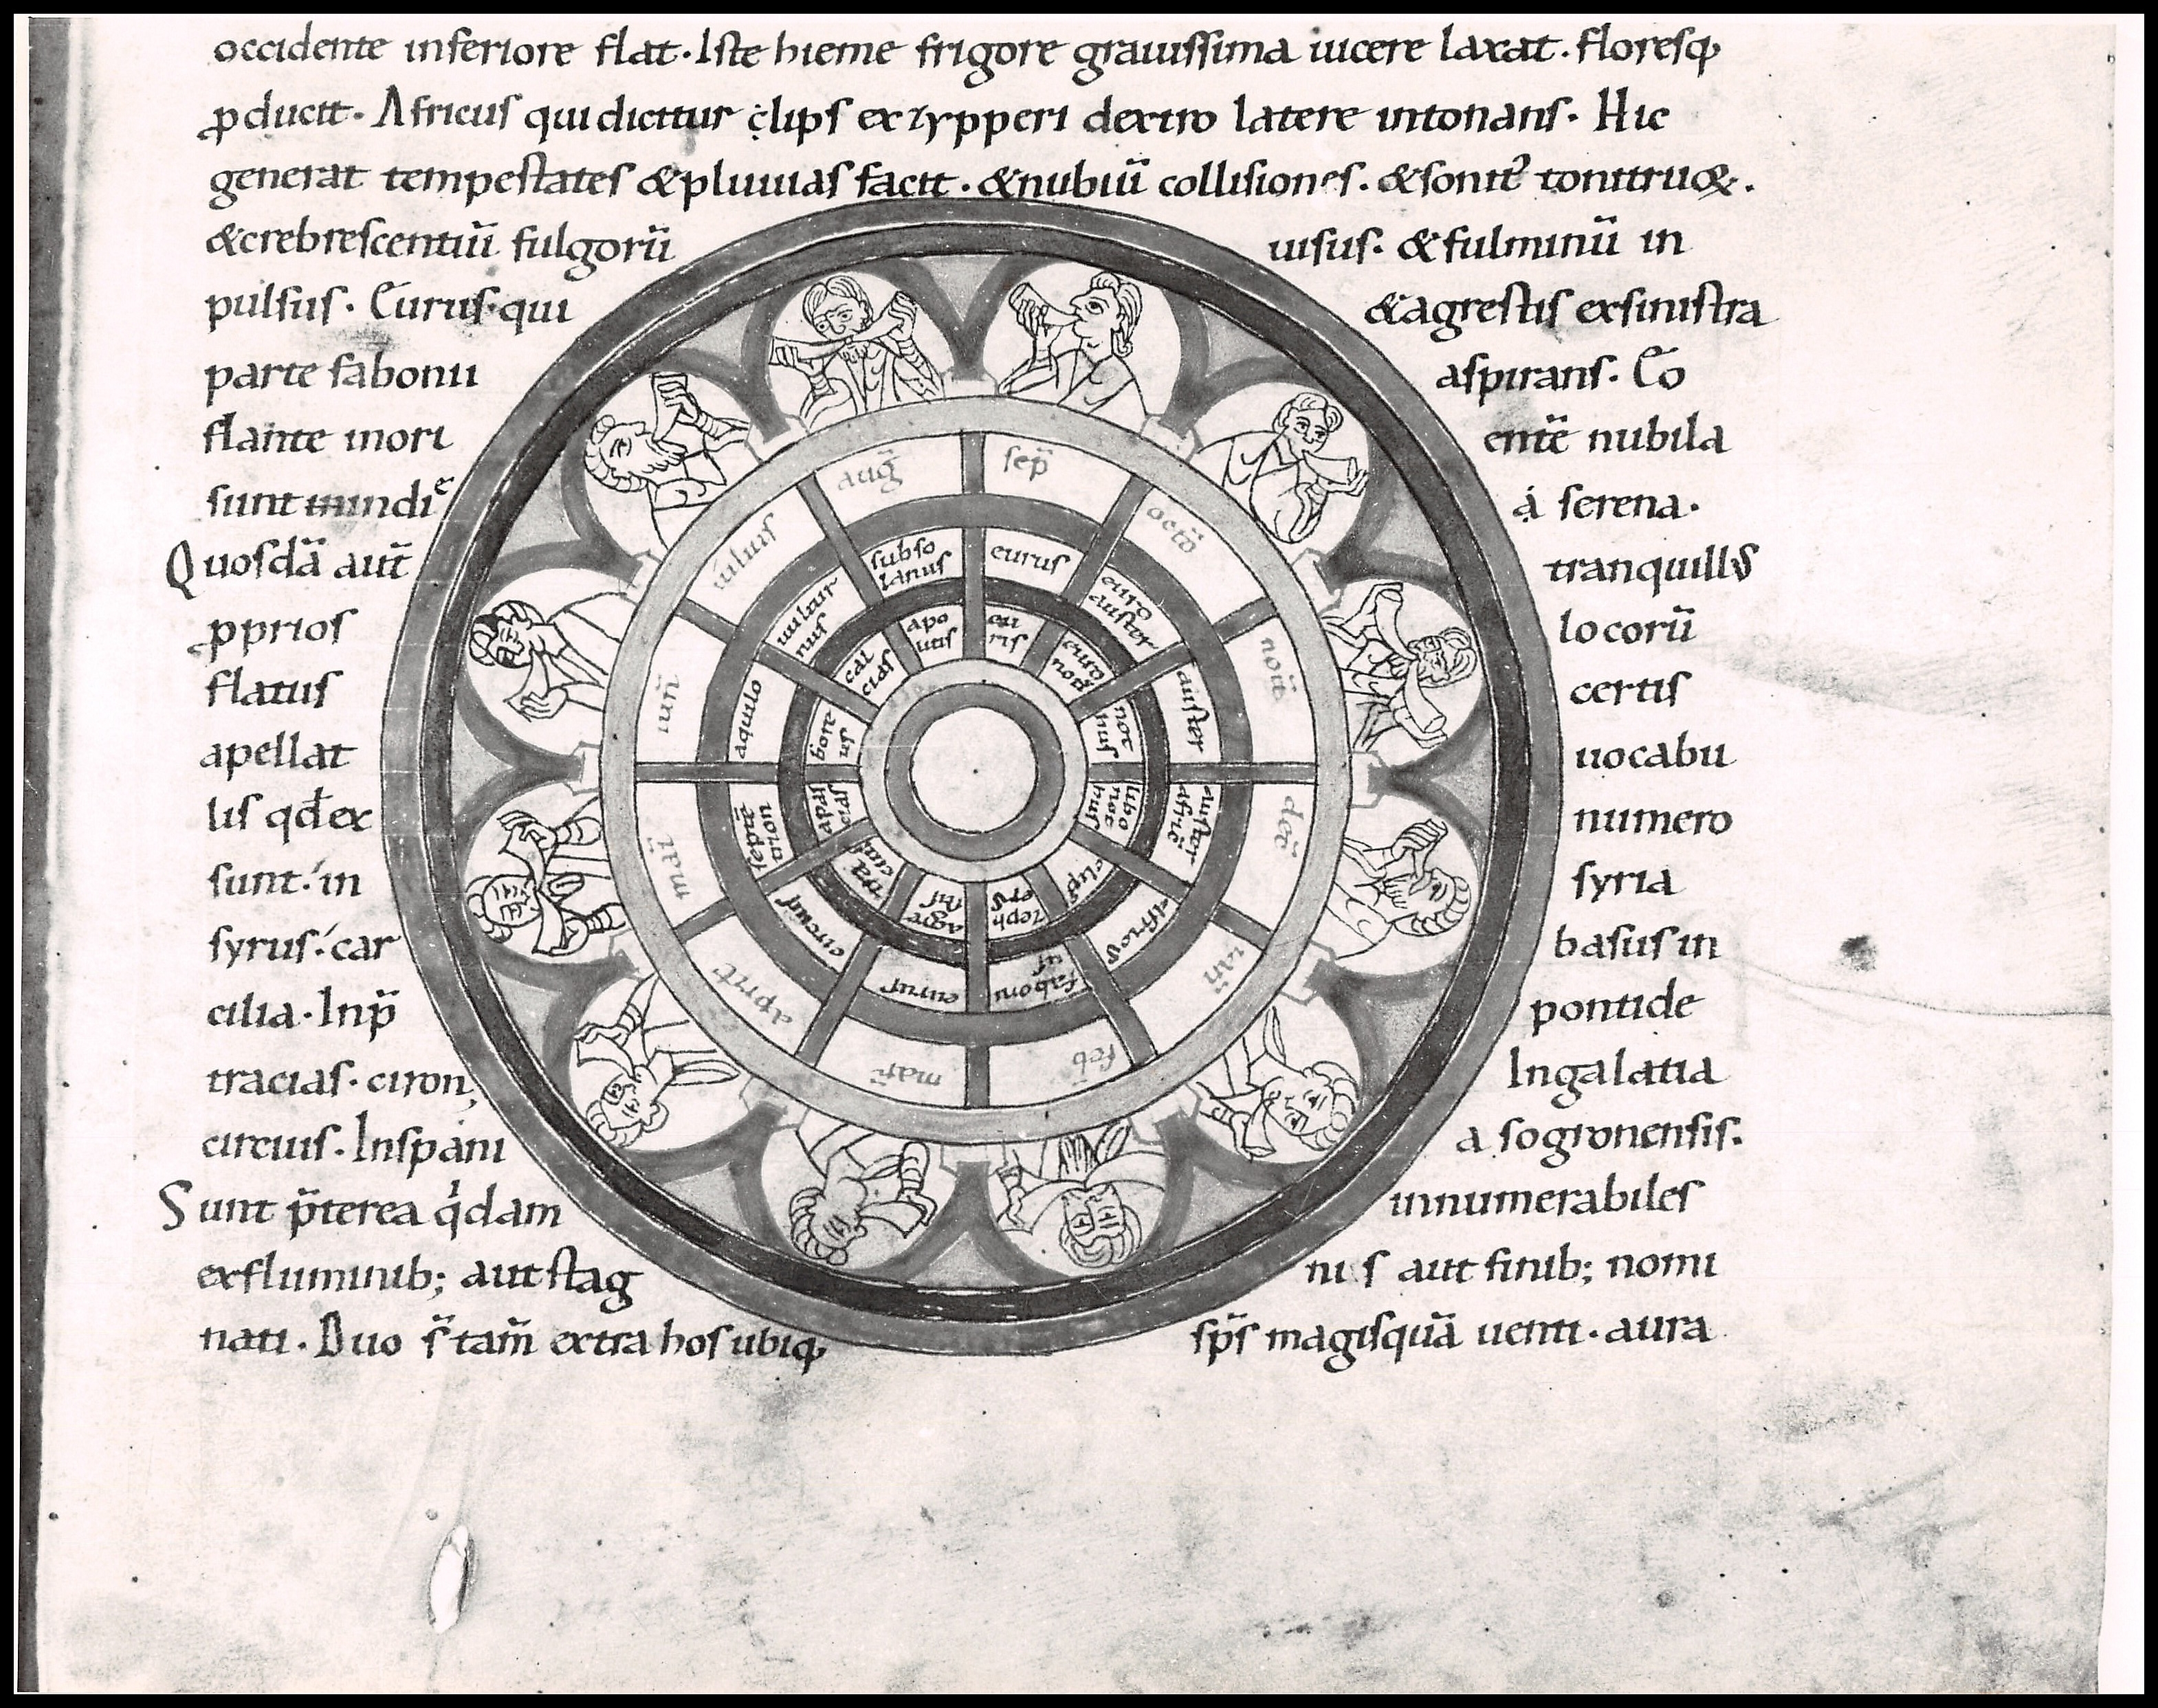 occidente inferiore flat. Iste hieme frigore grauissima uicere laxat. floresq;
pducit. Africus qui dicitur clips ex zypperi dextro latere intonans. Hic
generat tempestates & pluuias facit. & nubiū collisiones. & sonit᾽ tonitruū.
& crebrescentiū fulgorū uisus. & fulminū in
pulsus. Eurus. qui & agrestis ex sinistra
parte fabonii aspirans. Eo
flante inori entē nubila
sunt indiᵉ á serena.
Quosdā aut̄ tranquillꝰ
pprios locorū
flatus certis
apellat uocabu
lis qd̄ ex numero
sunt. in syria
syrus. car basus in
cilia. Inp̄ pontide
tracias. ciron; Ingalatia
circius. Inspani a sogronensis.
Sunt p̄terea q̇dam innumerabiles
exfluminib; aut stag nis aut finib; nomi
nati. Duo s̄ tam̄ extra hos ubiq; sp̄s magisquā uenti. aura
aug̅
sep̅
octō
nou̅
dec̅
ian̅
feb̅
mar̅
aprit
mai̅
iun̅
iulius
subso
lanus
eurus
euro
auster
auster
auster
afric̅
africus
faboni
us
eurus
circius
septē
trion
aquilo
uultur
nus
apo
utis
eu
ris
euro
not̅
not
hus
libo
not
hus
clips
zeph
erus
agre
stis
tra
cias
apar
cias
bore
us
cal
cias